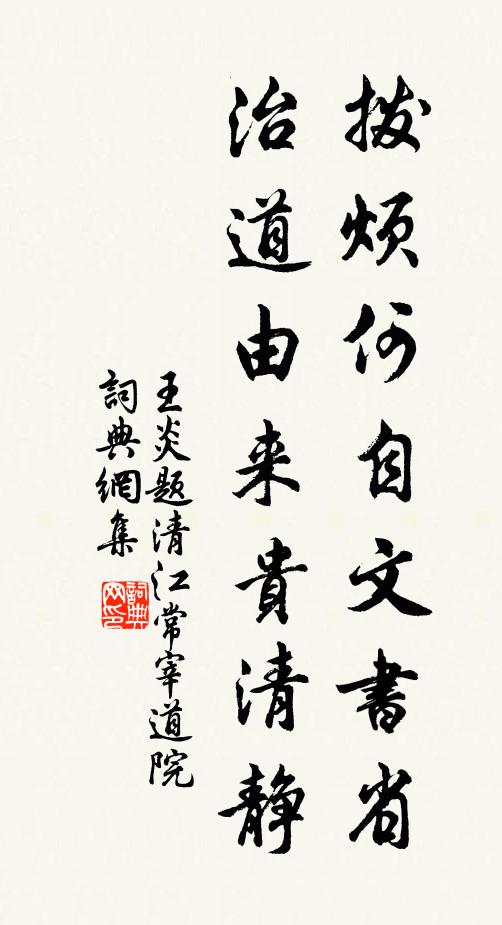 拨烦何自文書省
治道由来貴清静
王炎题清江常宰道院
詞典網集
詞典网印